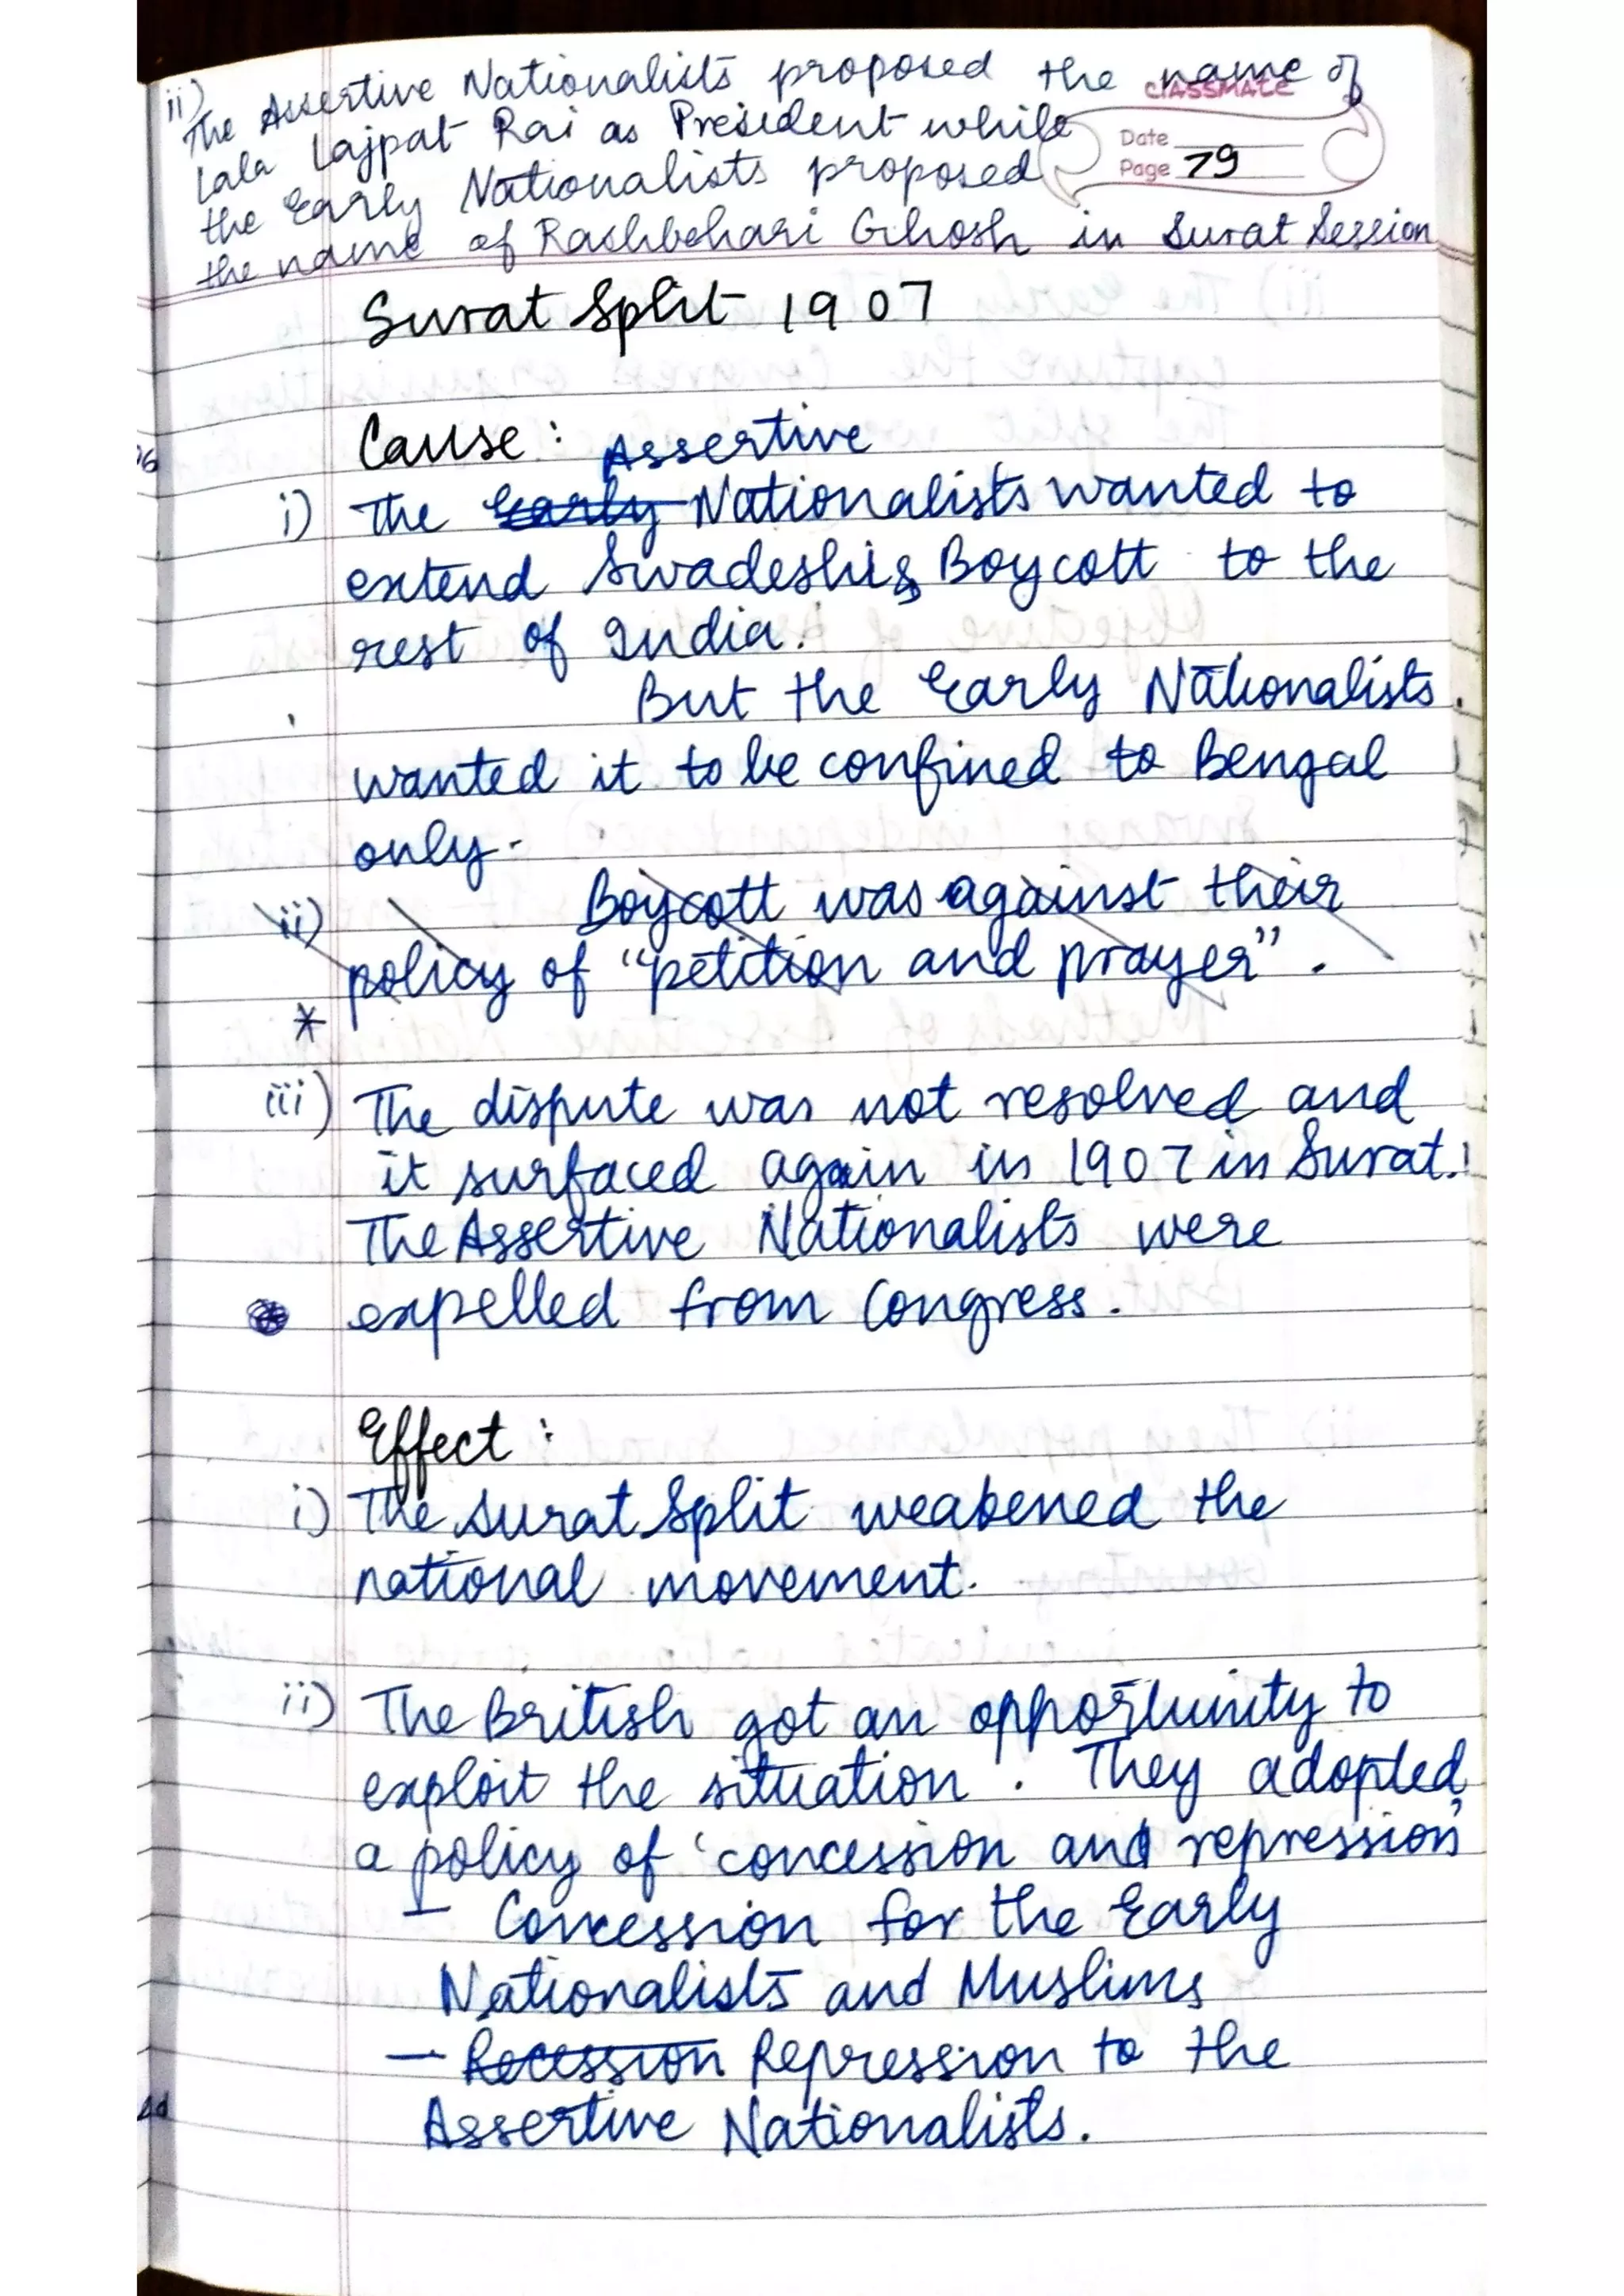 ii)
The Assertive Nationalists proposed the name of
Lala Lajpat Rai as President while
the Early Nationalists proposed
the name of Rashbehari Ghosh in Surat Session
classmate
Date
Page 79
Surat Split 1907
Cause: Assertive
i) The Early Nationalists wanted to
extend Swadeshi & Boycott to the
rest of India.
But the Early Nationalists
wanted it to be confined to Bengal
only.
ii) Boycott was against their
policy of "petition and prayer".
*
iii) The dispute was not resolved and
it surfaced again in 1907 in Surat.
The Assertive Nationalists were
expelled from Congress.
Effect:
i) The Surat Split weakened the
national movement.
ii) The British got an opportunity to
exploit the situation. They adopted
a policy of 'concession and repression'
- Concession for the Early
Nationalists and Muslims
- Recession Repression to the
Assertive Nationalists.